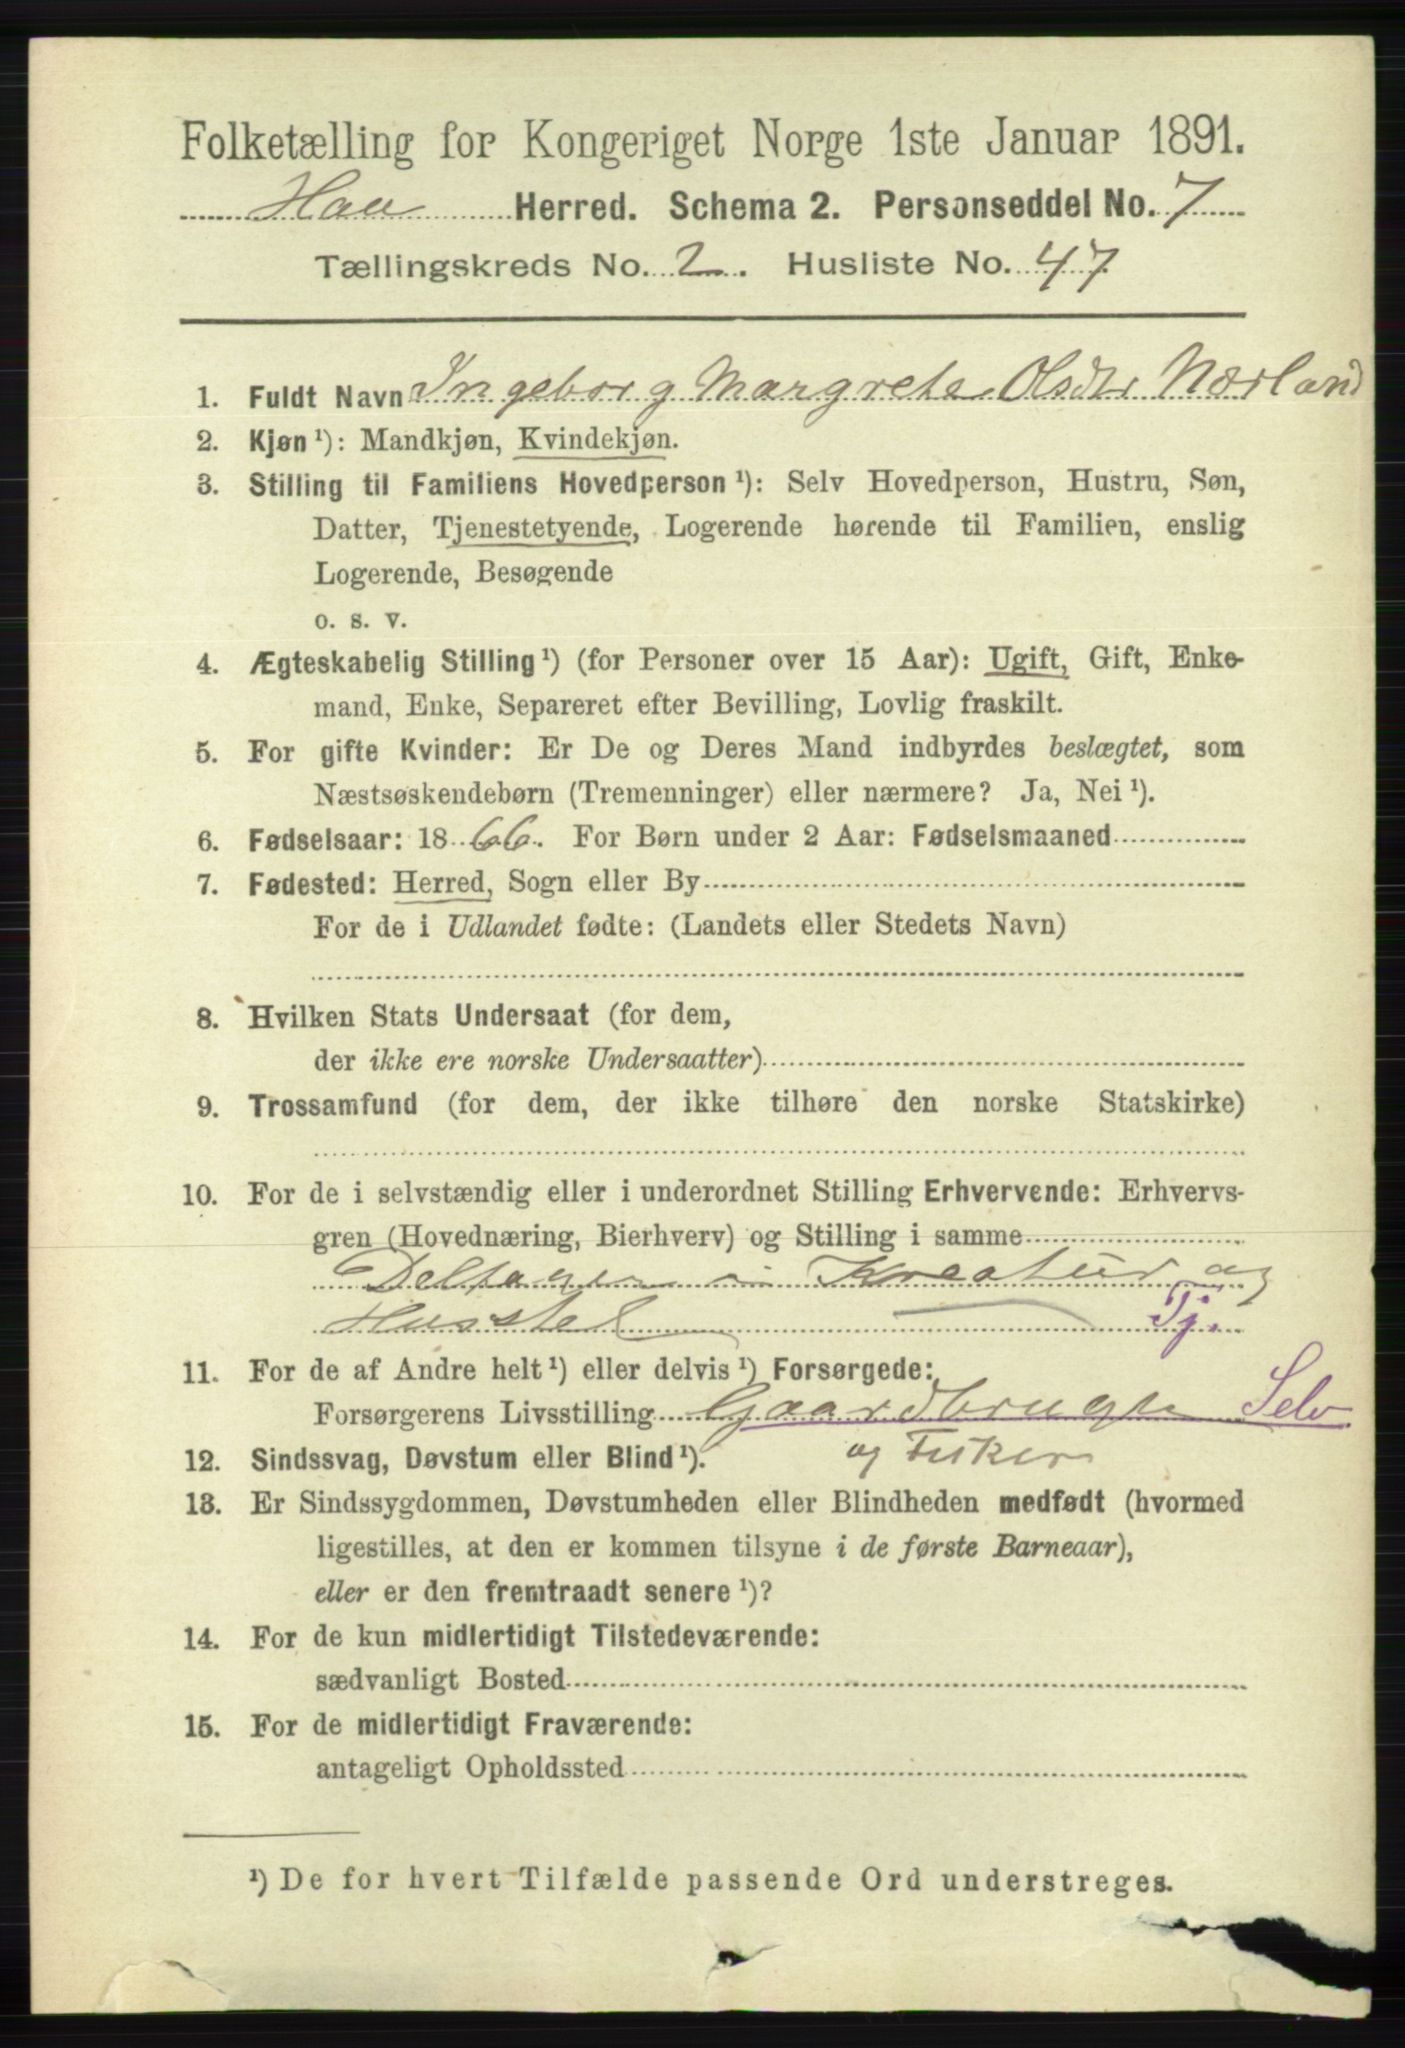 Folketælling for Kongeriget Norge 1ste Januar 1891.
Haa Herred. Schema 2. Personseddel No. 7
Tællingskreds No. 2. Husliste No. 47
1. Fuldt Navn Ingeborg Margrete Olsdtr Nærland
2. Kjøn ¹): Mandkjøn, Kvindekjøn.
3. Stilling til Familiens Hovedperson ¹): Selv Hovedperson, Hustru, Søn,
Datter, Tjenestetyende, Logerende hørende til Familien, enslig
Logerende, Besøgende
o. s. v.
4. Ægteskabelig Stilling ¹) (for Personer over 15 Aar): Ugift, Gift, Enke-
mand, Enke, Separeret efter Bevilling, Lovlig fraskilt.
5. For gifte Kvinder: Er De og Deres Mand indbyrdes beslægtet, som
Næstsøskendebørn (Tremenninger) eller nærmere? Ja, Nei ¹).
6. Fødselsaar: 1866. For Børn under 2 Aar: Fødselsmaaned
7. Fødested: Herred, Sogn eller By
For de i Udlandet fødte: (Landets eller Stedets Navn)
8. Hvilken Stats Undersaat (for dem,
der ikke ere norske Undersaatter)
9. Trossamfund (for dem, der ikke tilhøre den norske Statskirke)
10. For de i selvstændig eller i underordnet Stilling Erhvervende: Erhvervs-
gren (Hovednæring, Bierhverv) og Stilling i samme
Deltager i Kreatur og
Husstel Tj.
11. For de af Andre helt ¹) eller delvis ¹) Forsørgede:
Forsørgerens Livsstilling Gaardbruger Selv
12. Sindssvag, Døvstum eller Blind ¹). og Fisker
13. Er Sindssygdommen, Døvstumheden eller Blindheden medfødt (hvormed
ligestilles, at den er kommen tilsyne i de første Barneaar),
eller er den fremtraadt senere ¹)?
14. For de kun midlertidigt Tilstedeværende:
sædvanligt Bosted
15. For de midlertidigt Fraværende:
antageligt Opholdssted
¹) De for hvert Tilfælde passende Ord understreges.